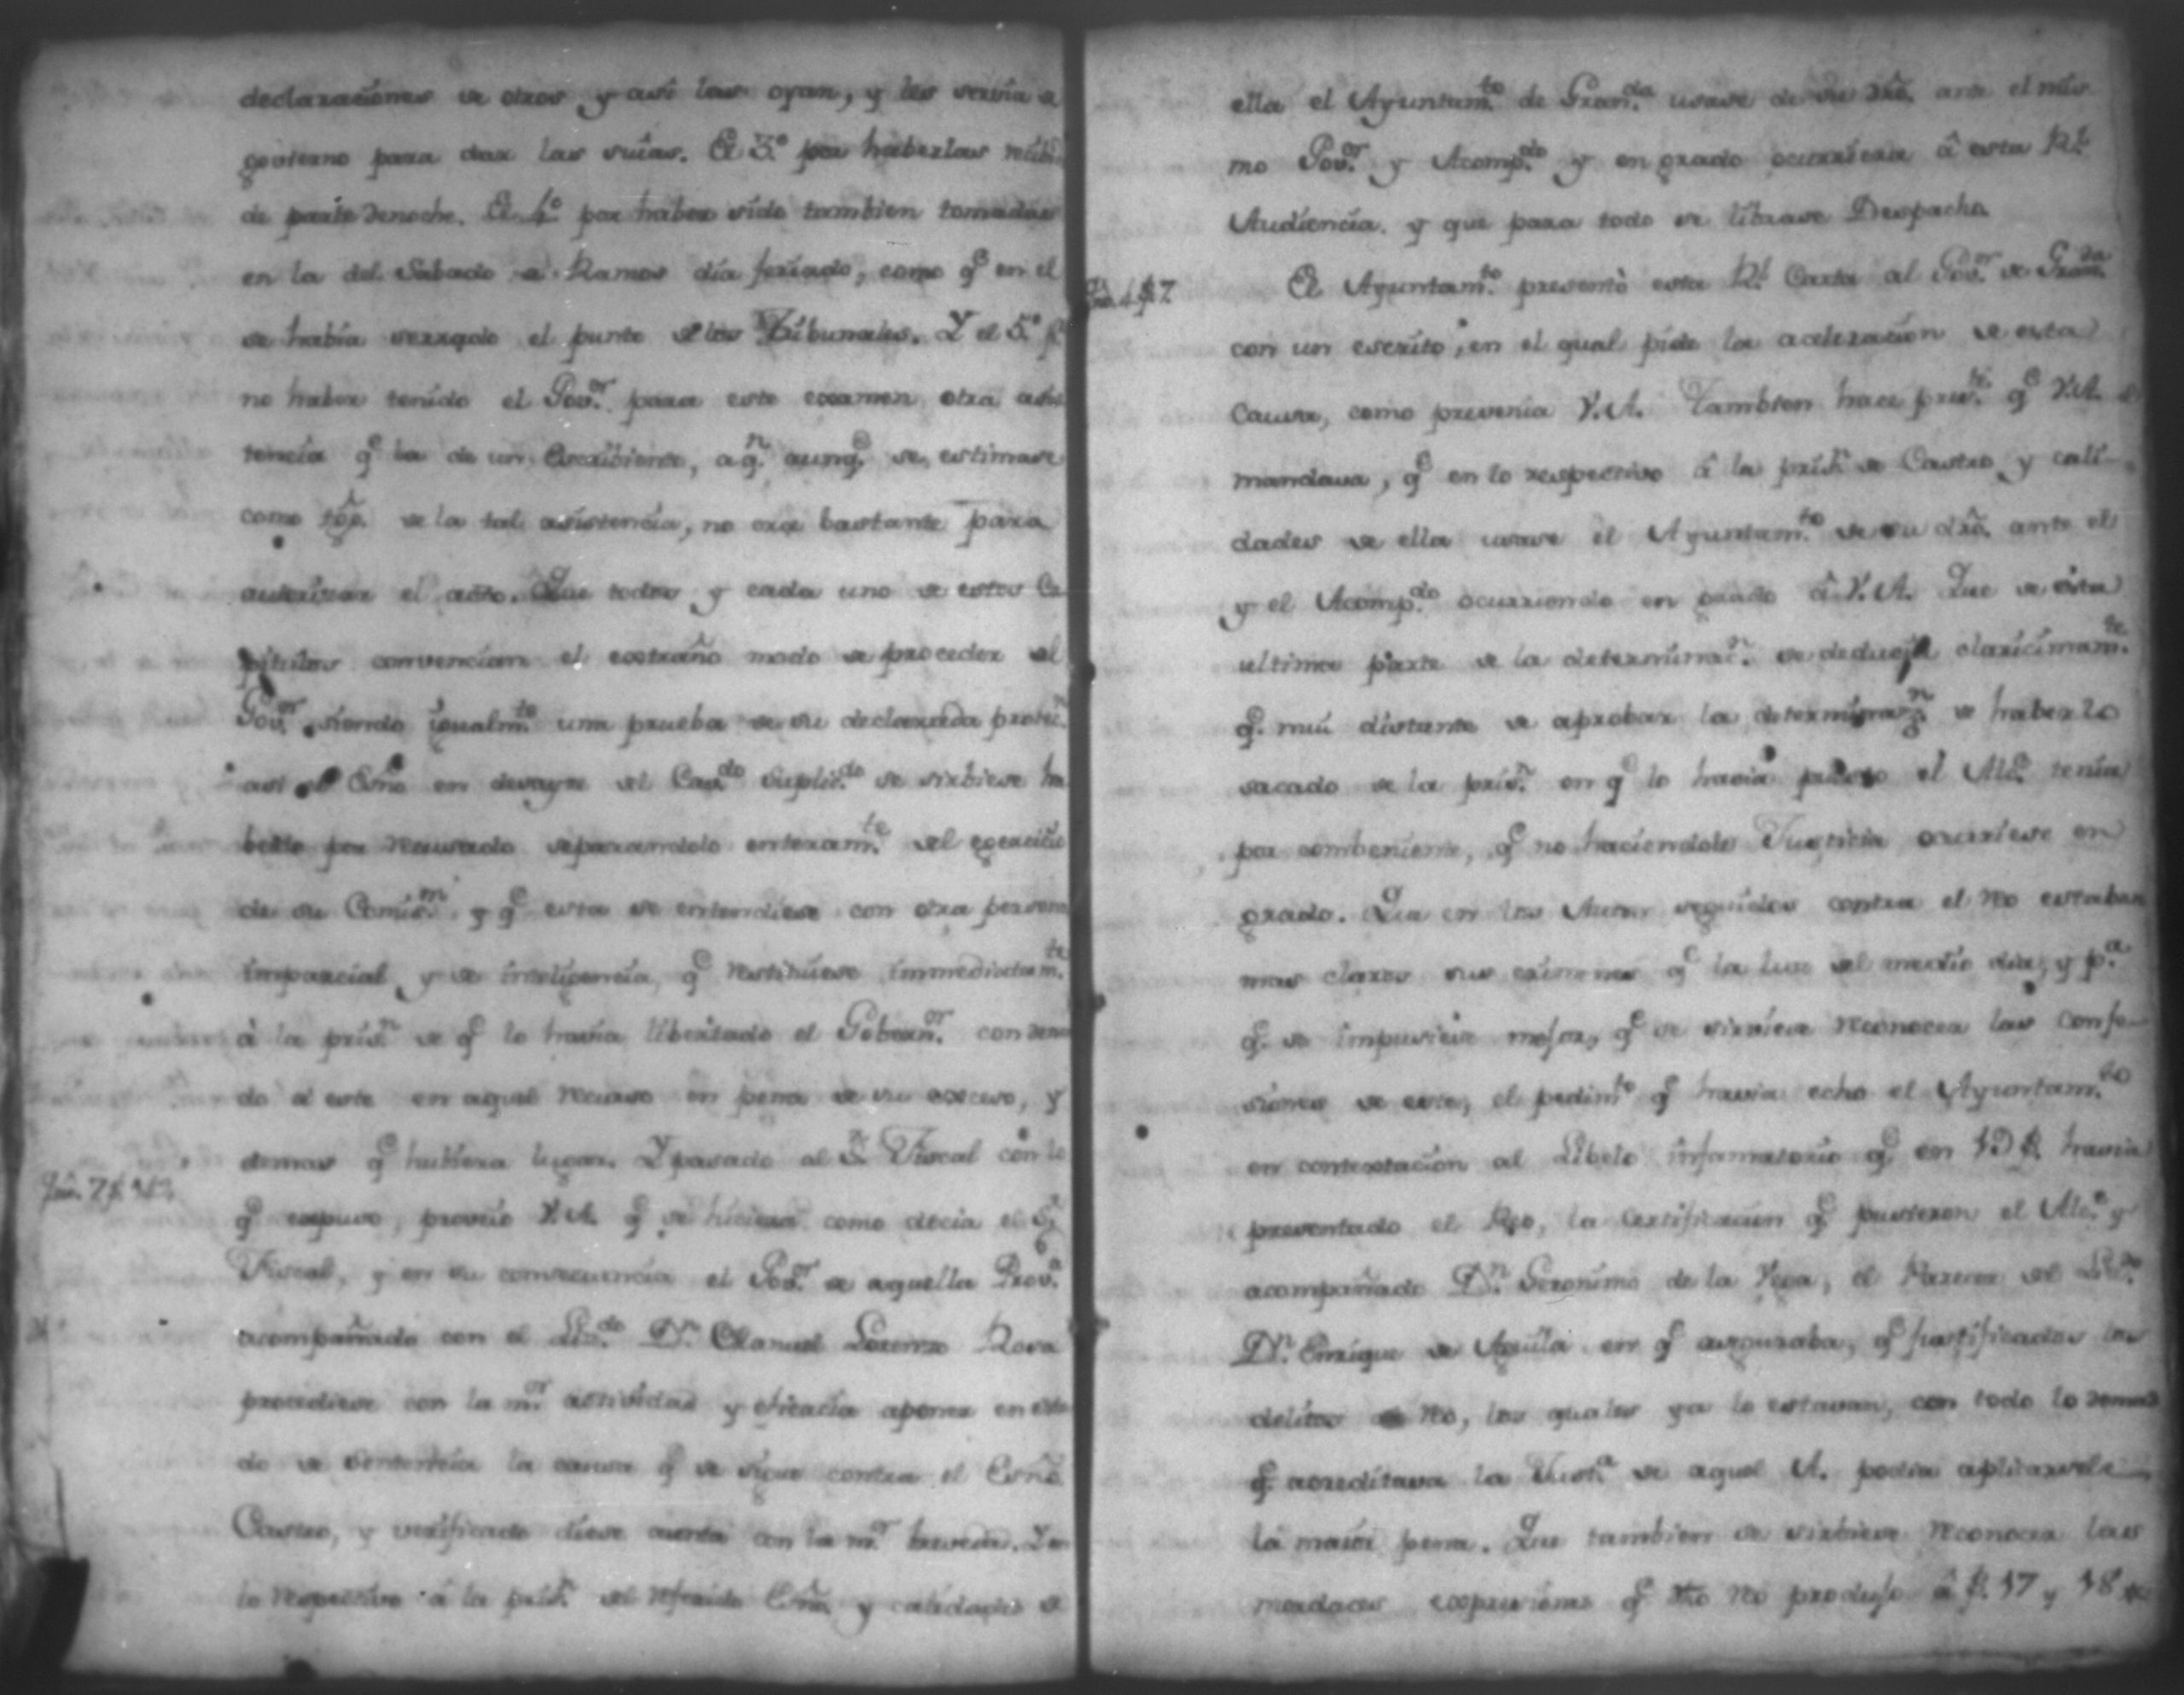 declaraciones de otros y asi las oyan, y les servia de
govierno para dar las suias. El 3.º por haberlas recibi
de parte denoche. El 4.º por haber sido tambien tomadas
en la del Sabado de Ramos dia feriado, como q.e en el
se habia serrado el punto de los Tribunales. Y el 5.º p.r
no haber tenido el Gov.or para este examen otra asis
tencia q.e la de un Escribiente, a q.n aunq.e se estimase
como tgo. de la tal asistencia, no era bastante para
autorizar el acto. Que todos y cada uno de estos Ca
pitulos convencian el extraño modo de proceder del
Gov.or siendo igualm.te una prueba de su declarada protec.n
asi al Esño en desayre del Cav.do Suplic.do se sirbiese ha
berlo por recusado separandolo enteram.te del egercicio
de su Comis.n y q.e esta se entendiese con otra persona
imparcial y de inteligencia, q.e restituiese immediatam.te
à la pris.n de q.e lo havia libertado el Gobern.or condena
do à este en aquel recurso en pena de su exceso, y
demas q.e hubiera lugar. Y pasado al S.r Fiscal con lo
q.e expuso, proveio V.A. q.e se hiciera como decia el S.r
Fiscal, y en su consecuencia el Gov.or de aquella Prov.a
acompañado con el Liz.do D.n Manuel Lorenzo Rosa
procediese con la m.or actividad y eficacia a poner en esta
do de Sentencia la causa q.e se sigue contra el Esño
Castro, y verificado diese cuenta con la m.or brevedad. Y en
lo respectivo à la pris.n del referido Esño y calidades de
ella el Ayuntam.to de Gran.da usase de su dro. ante el mis
mo Gov.or y Acomp.do y en grado ocurriera â esta R.l
Audiencia. y que para todo se librase Despacho.
El Ayuntam.to presentò esta R.l Carta al Gov.or de Gran.da
con un escrito, en el qual pide la aceleracion de esta
Causa, como prevenia V.A. Tambien hace pres.te q.e V.A.
mandava, q.e en lo respectivo â la pris.n de Castro y cali-
dades de ella usase el Ayuntam.to de su dro. ante el
y el Acomp.do ocurriendo en grado â V.A. Que de esta
ultima parte de la determinac.n se deducia claricimam.te
q.e mui distante de aprobar la determinaz.n de haberlo
sacado de la pris.n en q.e lo havia puesto el Alc.e tenia
por combeniente, q.e no haciendole Justicia ocurriese en
grado. Que en los Autos seguidos contra el reo estaban
mas claros sus crimenes q.e la luz del medio dia, y p.a
q.e se impusiese mejor, q.e se sirviese reconocer las confe-
siones de este, el pedim.to q.e havia echo el Ayuntam.to
en contextacion al Libelo infamatorio q.e en 19 f. havia
presentado el Reo, la Certificacion q.e pusieron el Alc.e y
acompañado D.n Geronimo de la Vega, el Parecer del Liz.do
D.n Enrique de Aguila en q.e aseguraba, q.e justificados los
delitos reo, los quales ya lo estavan, con todo lo demas
q.e acreditava la Just.a de aquel A. podia aplicarsele
la maior pena. Que tambien se sirbiese reconocer las
mordaces expresiones q.e dho reo produjo â f. 17 y 18